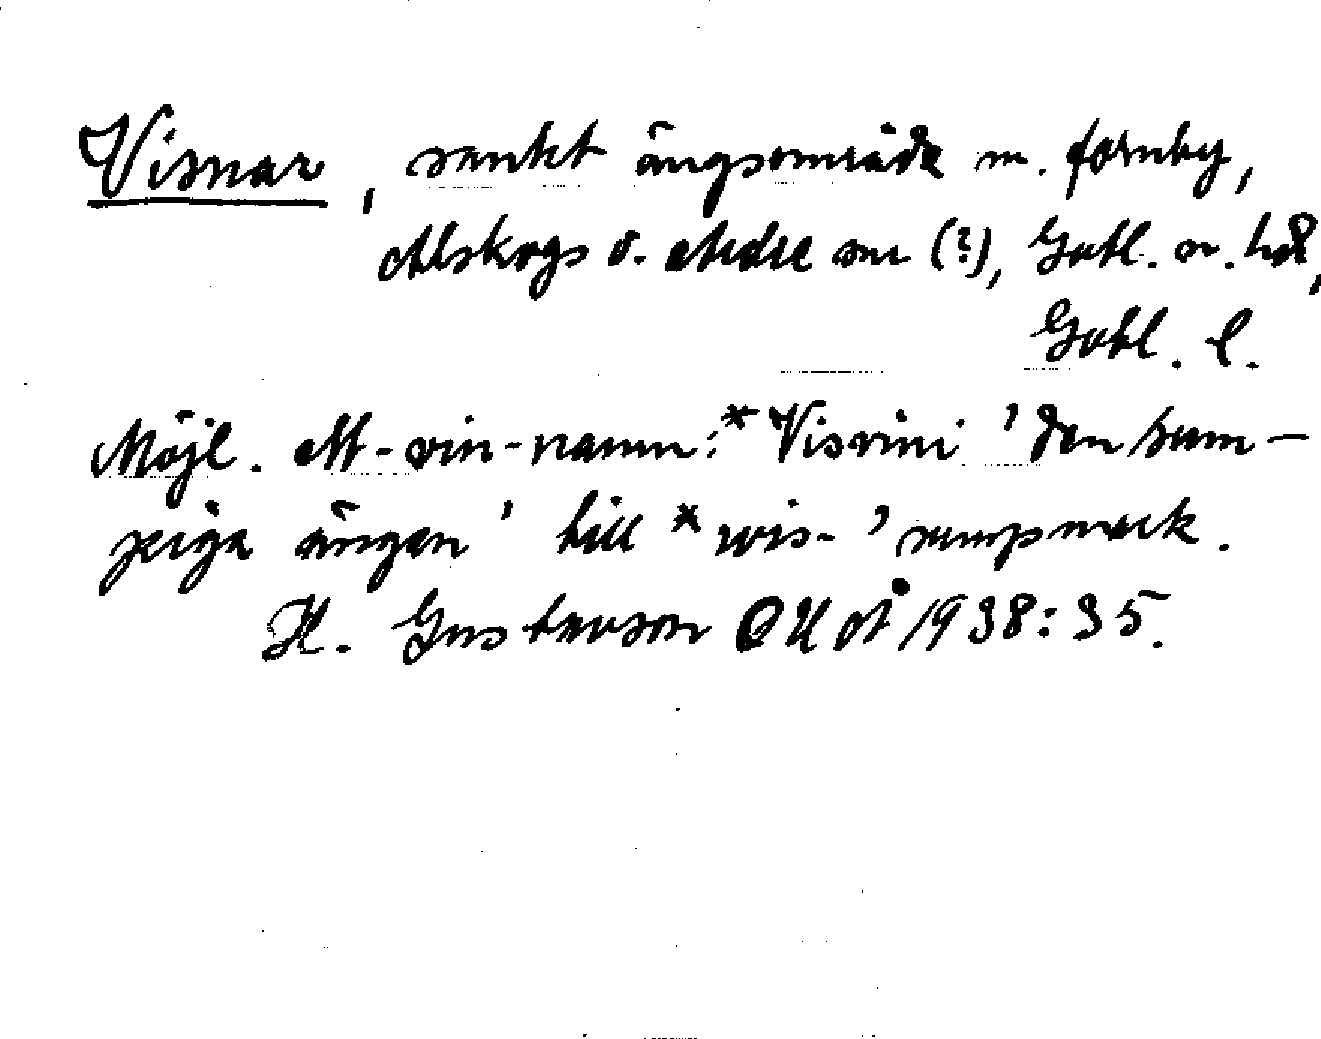 Visnar, sankt ängsområde m. fornby,
Alskogs o. Ardre snr (?), Gotl. s. hd,
Gotl. l.
Möjl. ett -vin-namn: *Visvini 'den sum-
piga ängen' till *wis- 'sumpmark.
H. Gustavson GUOÅ 1938:35.